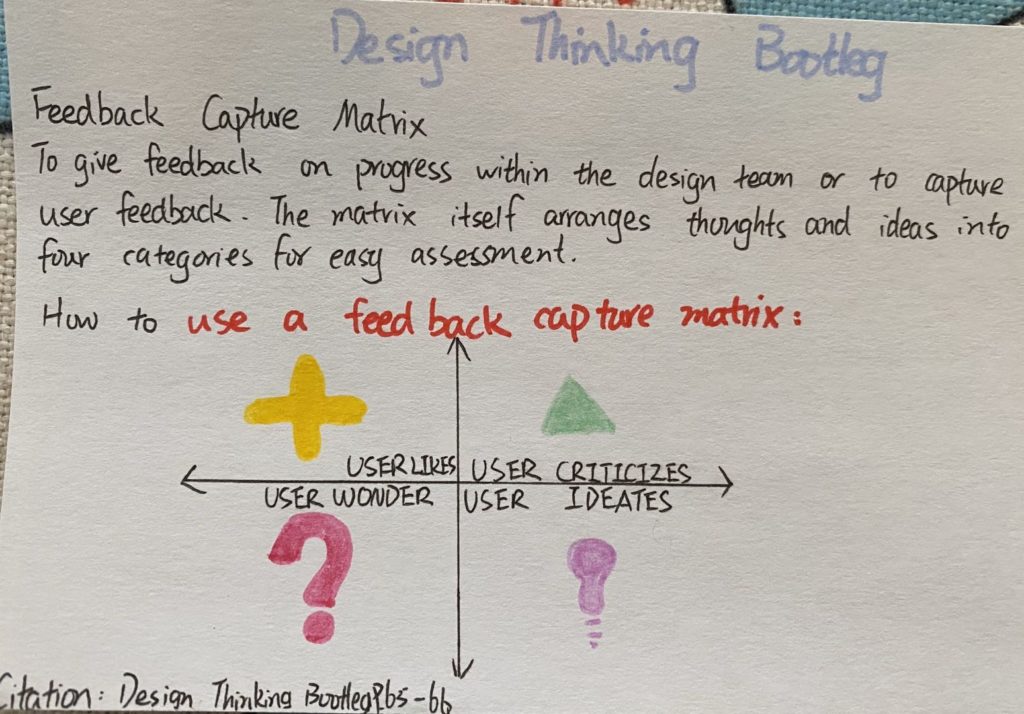 Design Thinking Bootleg
Feedback Capture Matrix
To give feedback on progress within the design team or to capture
user feedback. The matrix itself arranges thoughts and ideas into
four categories for easy assessment.
How to use a feedback capture matrix:
USER LIKES USER CRITICIZES
USER WONDER USER IDEATES
Citation: Design Thinking Bootleg P65-66